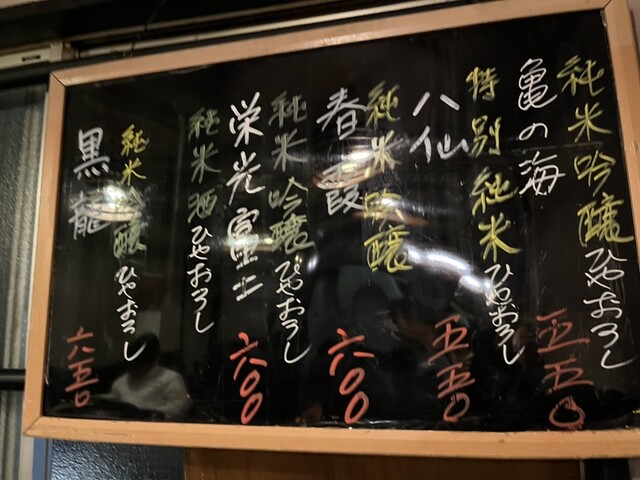 純米吟醸ひやおろし
亀の海 五五〇
特別純米ひやおろし
八仙 五五〇
純米吟醸
春霞 六〇〇
純米吟醸ひやおろし
栄光冨士 六〇〇
純米酒ひやおろし
純米吟醸ひやおろし
黒龍 六五〇